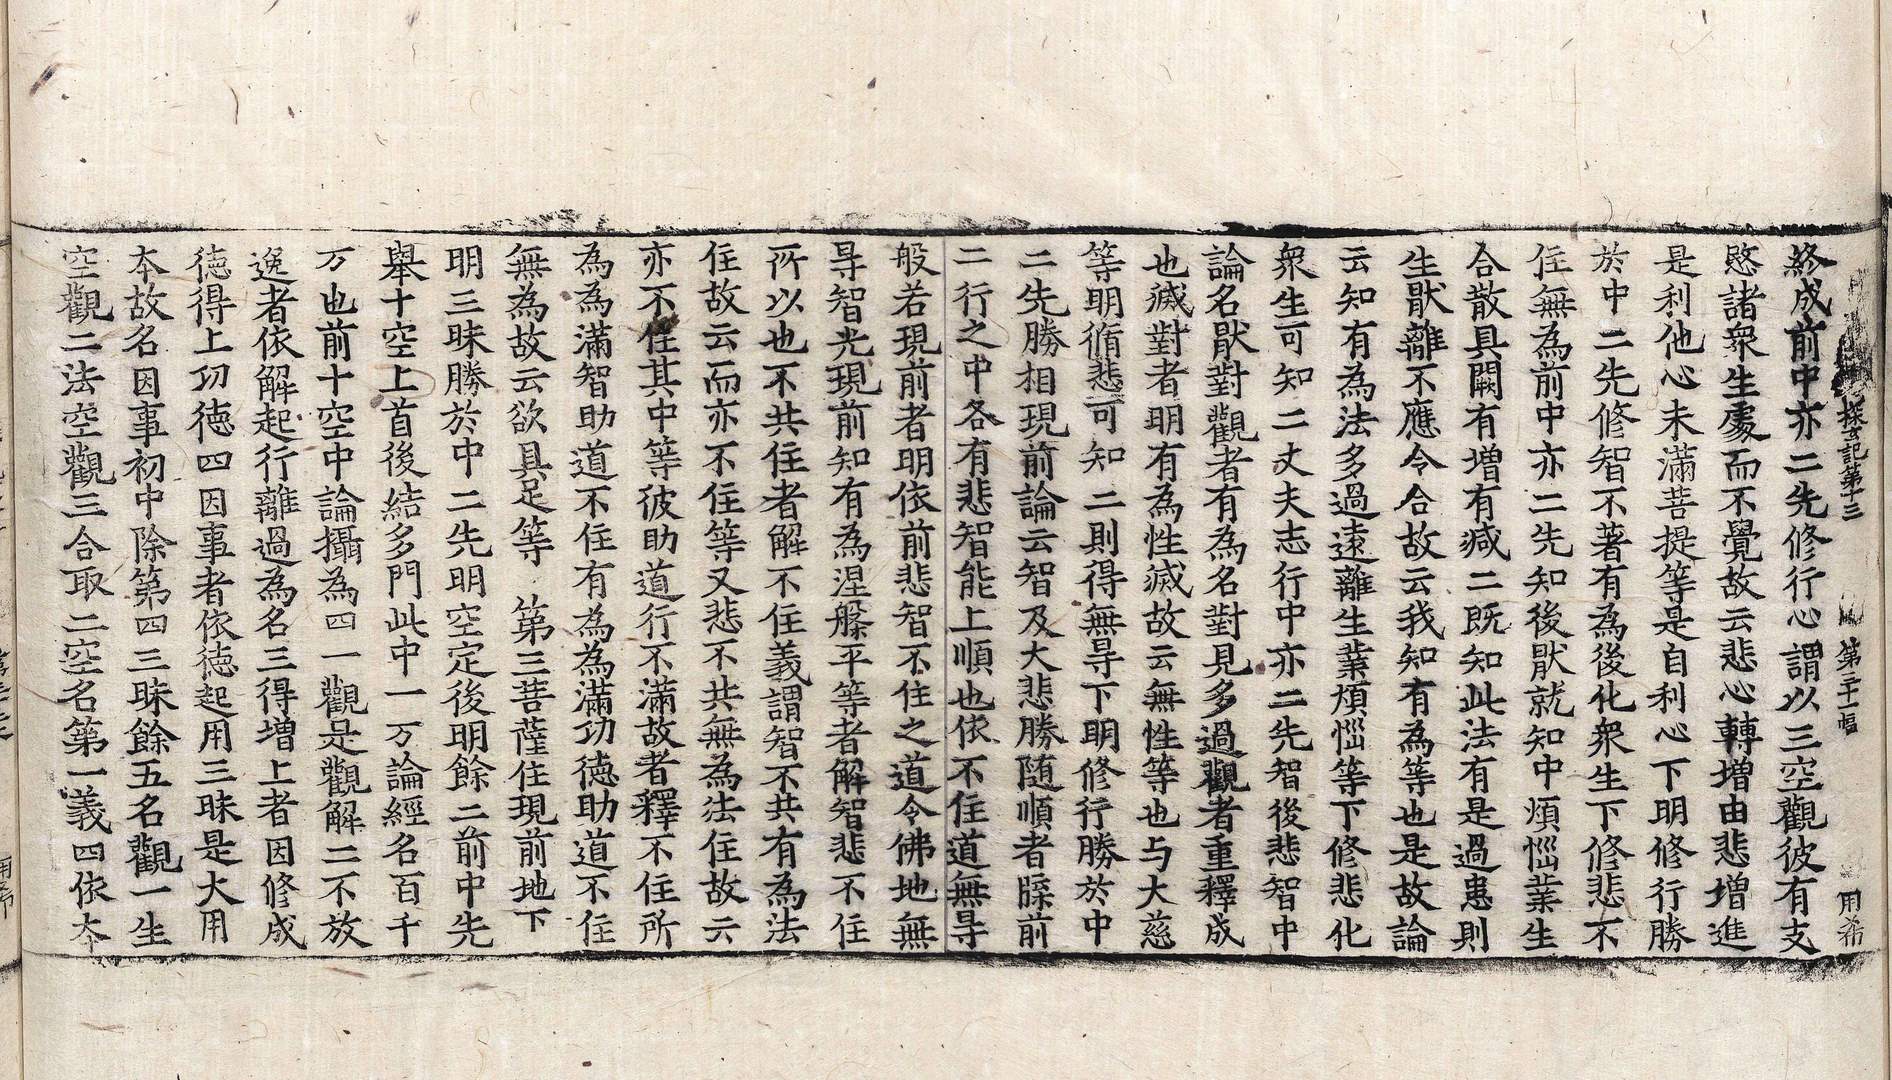 探玄記第十三　第三十一幅　用希
終成前中亦二先修行心謂以三空觀彼有支
愍諸衆生處而不覺故云悲心轉增由悲增進
是利他心未滿菩提等是自利心下明修行勝
於中二先修智不著有為後化衆生下修悲不
住無為前中亦二先知後猒就知中煩惱業生
合散具闕有增有減二既知此法有是過患則
生猒離不應令合故云我知有為等也是故論
云知有為法多過遠離生業煩惱等下修悲化
衆生可知二丈夫志行中亦二先智後悲智中
論名猒對觀者有為名對見多過觀者重釋成
也滅對者明有為性滅故云無性等也与大慈
等明循悲可知 二則得無㝵下明修行勝於中
二先勝相現前論云智及大悲勝随順者牒前
二行之中各有悲智能上順也依不住道無㝵
般若現前者明依前悲智不住之道令佛地無
㝵智光現前知有為涅槃平等者解智悲不住
所以也不共住者解不住義謂智不共有為法
住故云而亦不住等又悲不共無為法住故云
亦不住其中等彼助道行不滿故者釋不住所
為為滿智助道不住有為為滿功德助道不住
無為故云欲具足等 第三菩薩住現前地下
明三昧勝於中二先明空定後明餘二前中先
舉十空上首後結多門此中一万論經名百千
万也前十空中論攝為四一觀是觀解二不放
逸者依解起行離過為名三得增上者因修成
徳得上功徳四因事者依徳起用三昧是大用
夲故名因事初中除第四三昧餘五名觀一生
空觀二法空觀三合取二空名第一義四依夲